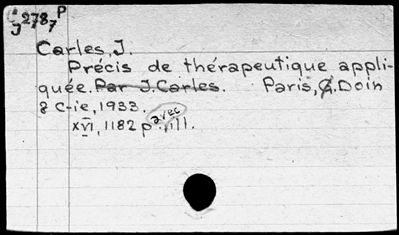 278₇P
Carles, J.
Précis de thérapeutique appli-
quée. Par J. Carles. Paris, G. Doin
& C-ie, 1933.
XVI, 1182 p. avec ill.